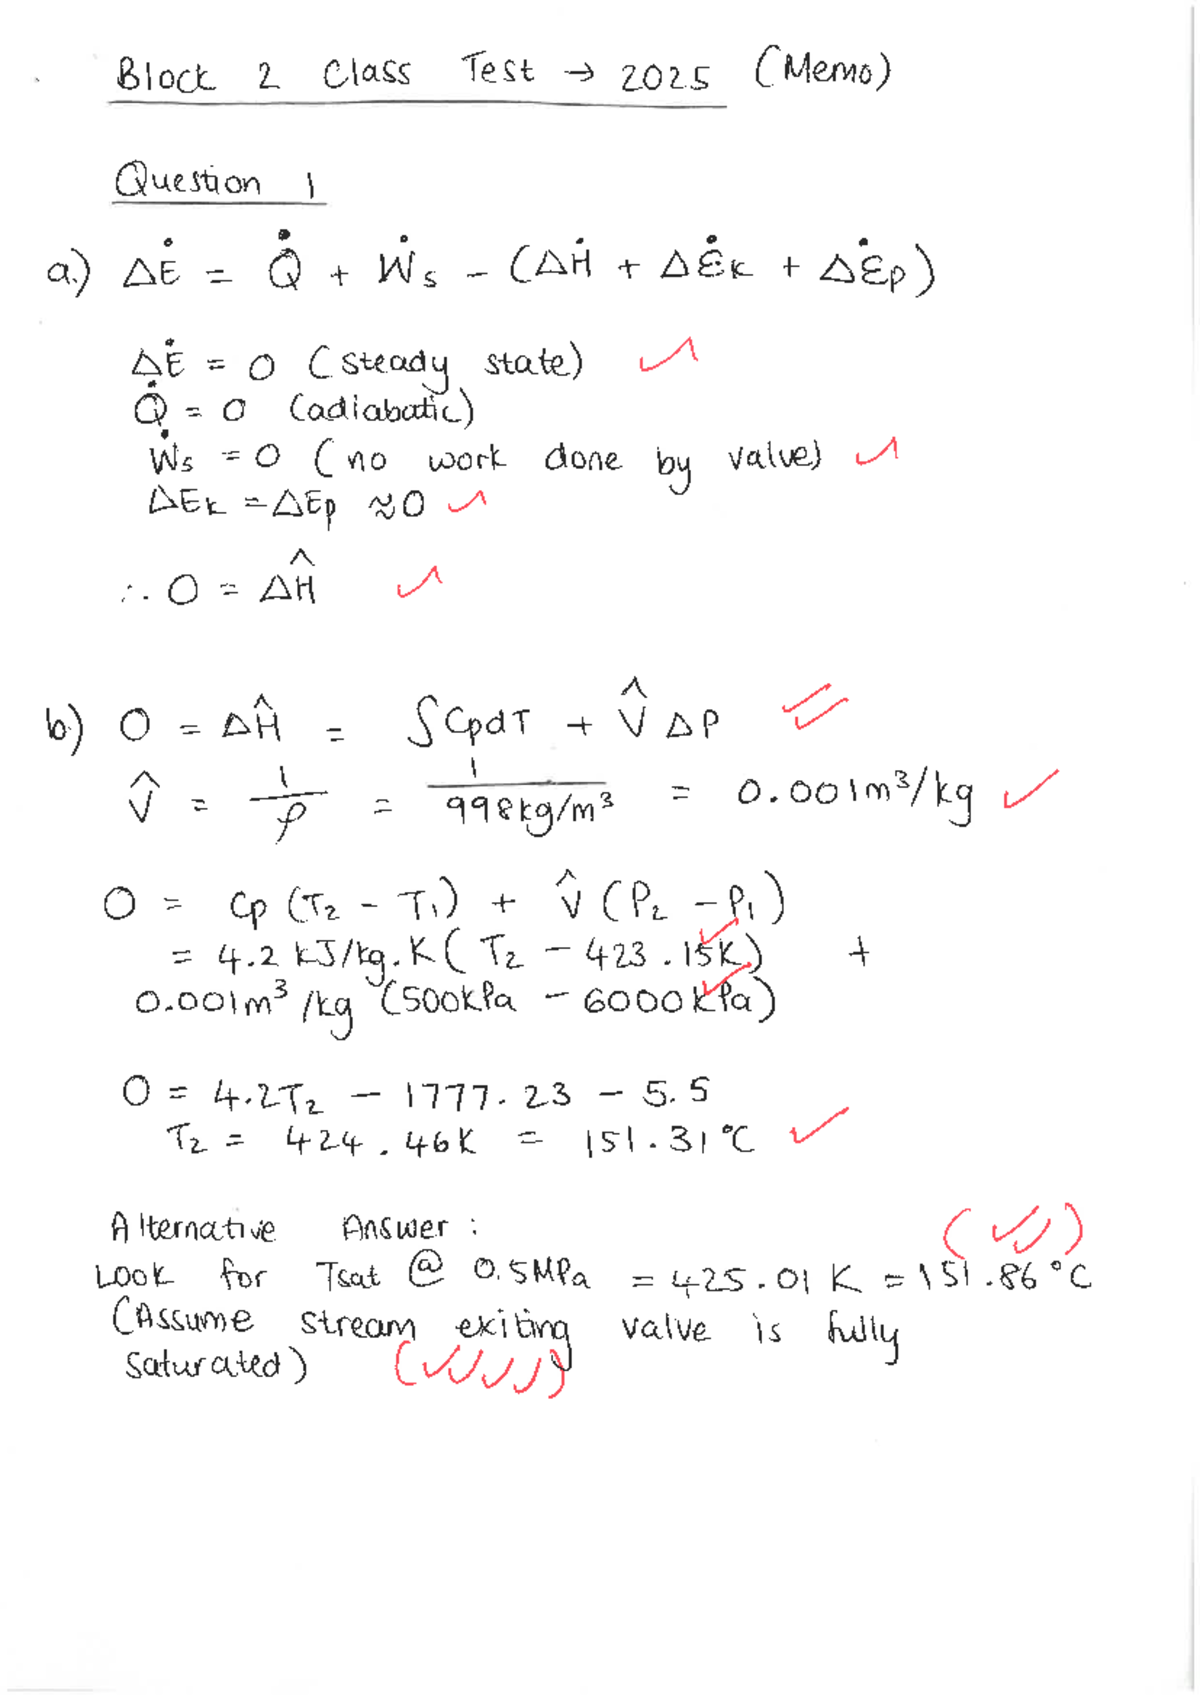 Block 2 Class Test → 2025 (Memo)
Question 1
a.) ΔĖ = Q̇ + Ẇs - (ΔḢ + ΔĖk + ΔĖp)
ΔĖ = 0 (steady state)
Q̇ = 0 (adiabatic)
Ẇs = 0 (no work done by valve)
ΔEk = ΔEp ≈ 0
∴ 0 = ΔĤ
b.) 0 = ΔĤ = ∫CpdT + V̂ ΔP
V̂ = 1/ρ = 1/998kg/m³ = 0.001m³/kg
0 = Cp (T₂ - T₁) + V̂ (P₂ - P₁)
= 4.2 kJ/kg.K (T₂ - 423.15K) +
0.001m³/kg (500kPa - 6000kPa)
0 = 4.2T₂ - 1777.23 - 5.5
T₂ = 424.46K = 151.31°C
Alternative Answer:
Look for Tsat @ 0.5MPa = 425.01 K = 151.86°C
(Assume stream exiting valve is fully
saturated)